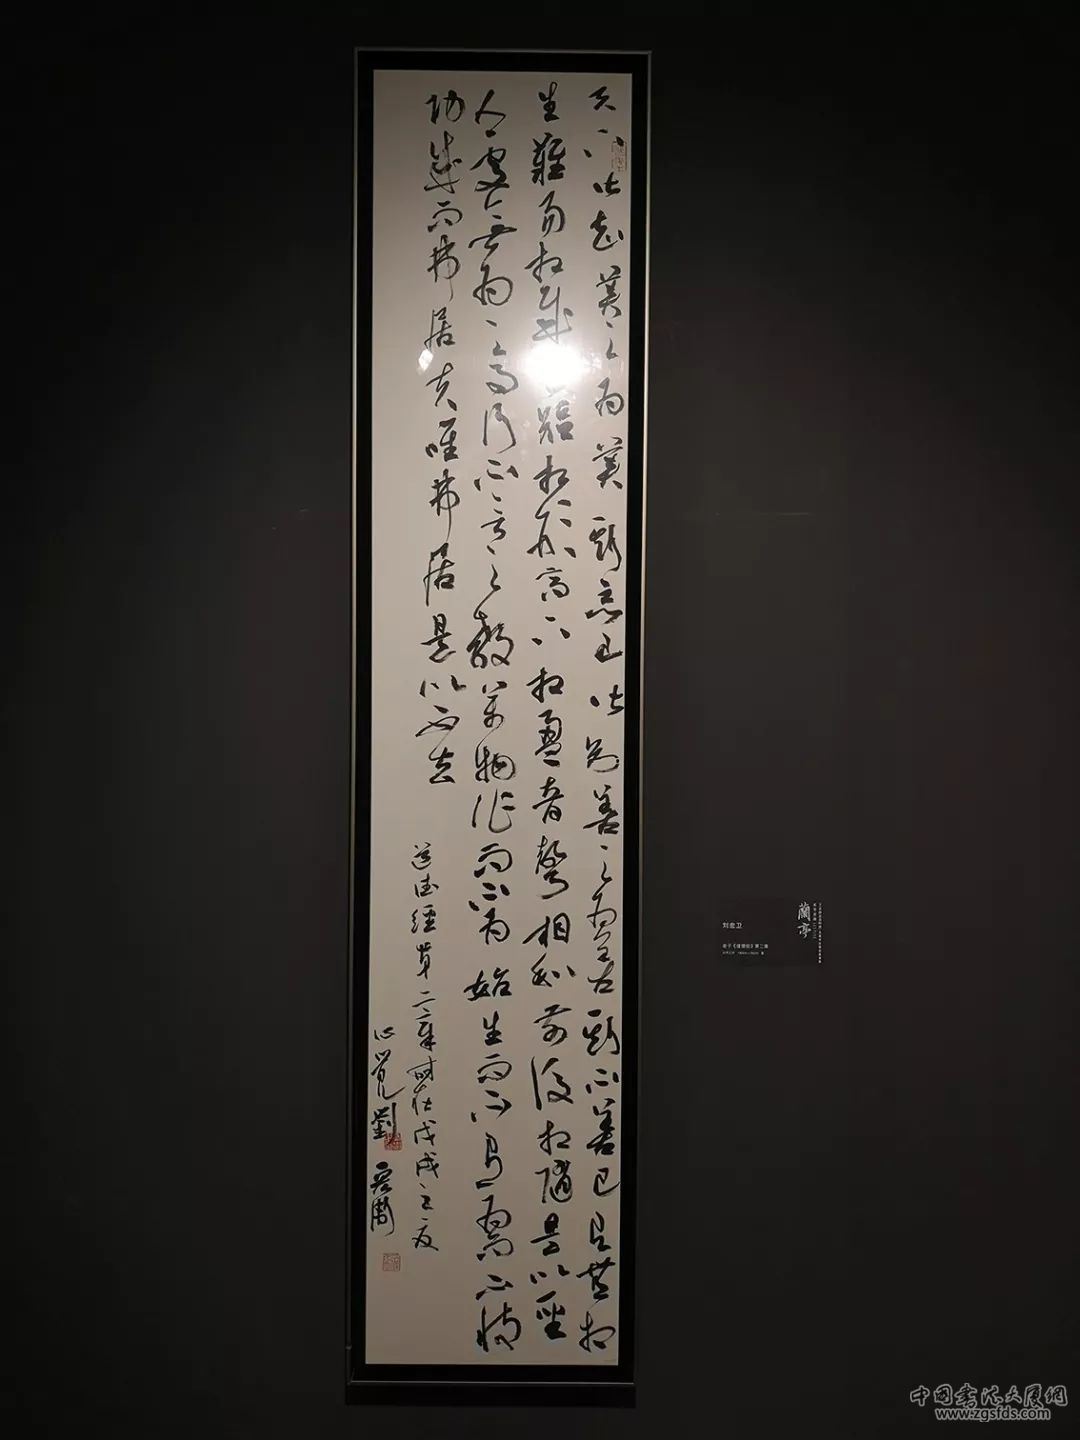 天下皆知美之為美斯惡已皆知善之為善斯不善已有無相
生難易相成短相形高下相盈音聲相和前後相隨是以聖
人處無為之事行不言之教萬物作而不為始生而不有為而不恃
功成而弗居夫唯弗居是以不去
道德經第二章時在戊戌之夏
心覺劉宏衛
蘭亭
刘宏卫
老子《道德经》第二章
中国书法大厦网
www.zgsfds.com